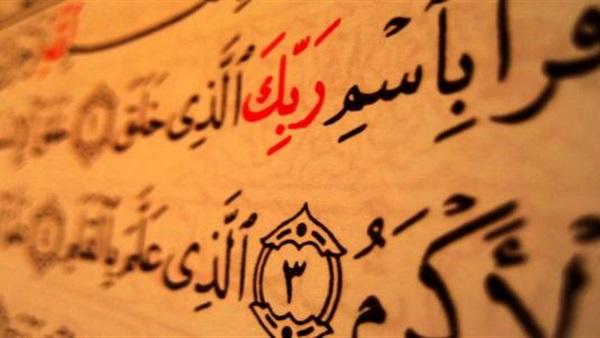 قرأ بِٱسْمِ رَبِّكَ ٱلَّذِى خَلَقَ ١ خَلَقَ
ٱلْأَكْرَمُ ٣ ٱلَّذِى عَلَّمَ بِٱلْقَلَمِ ٤